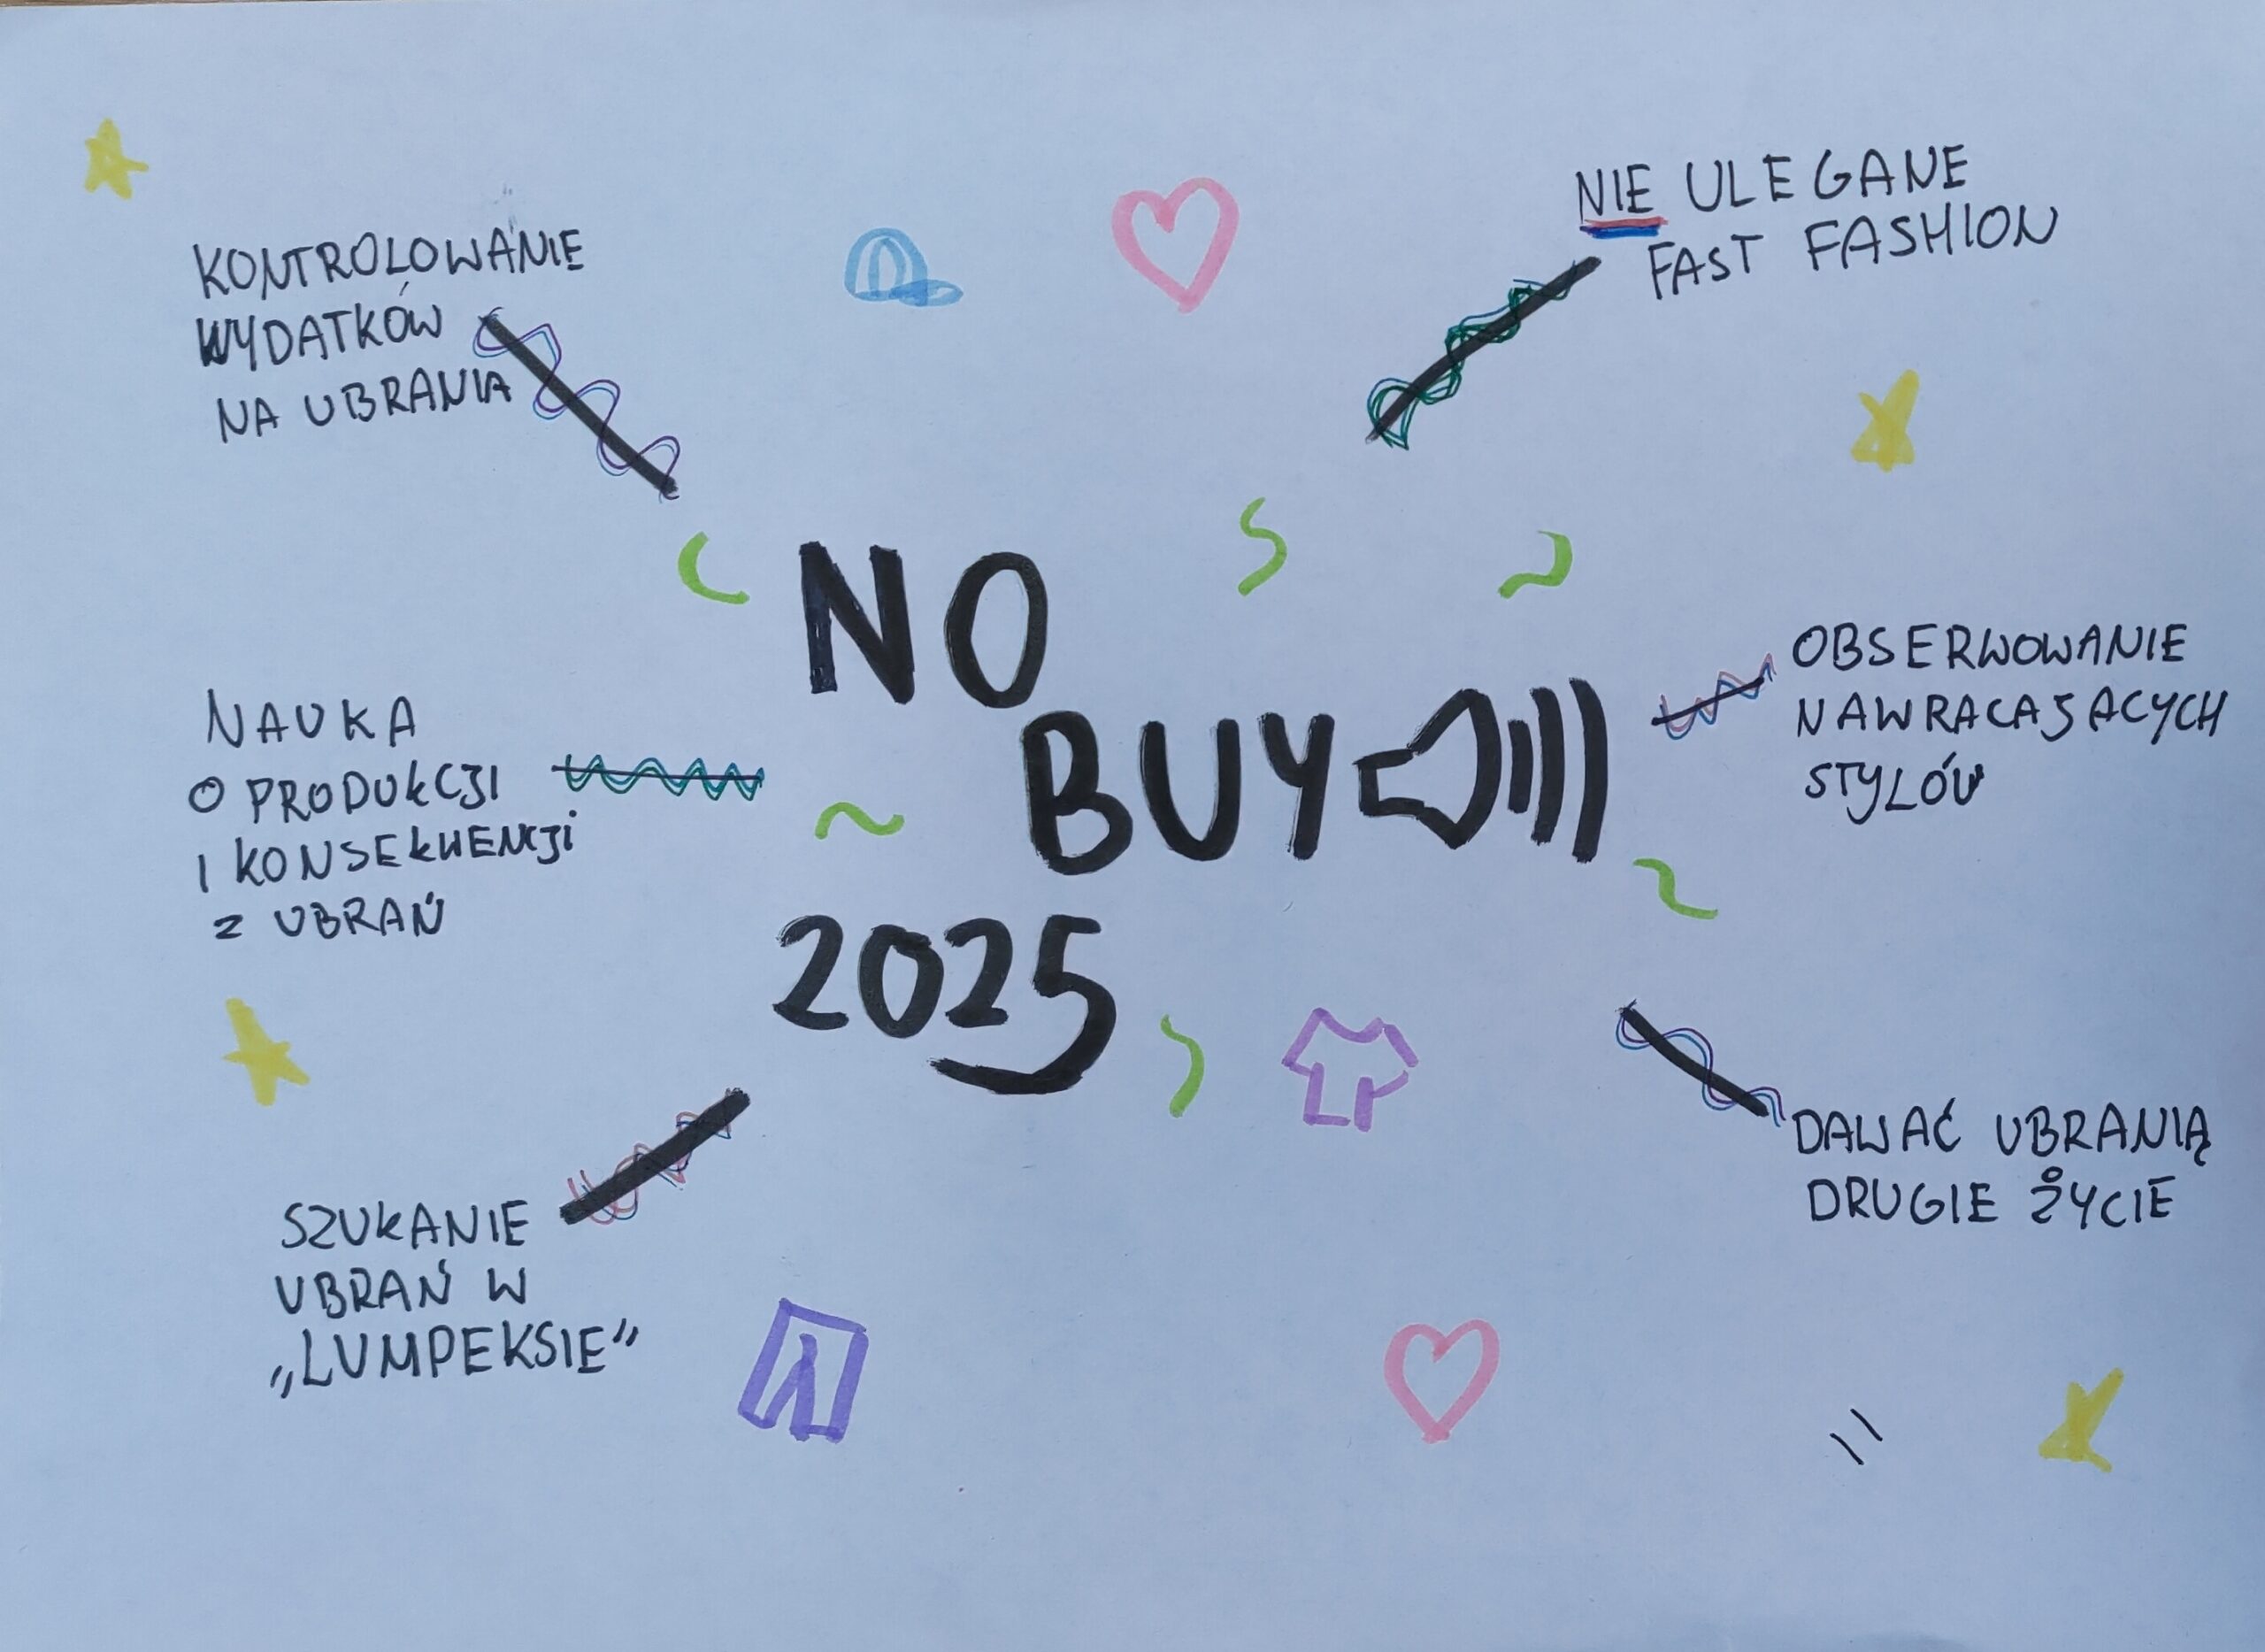 KONTROLOWANIE
WYDATKÓW
NA UBRANIA
NIE ULEGANE
FAST FASHION
NO
BUY
2025
NAUKA
O PRODUKCJI
I KONSEKWENCJI
Z UBRAŃ
OBSERWOWANIE
NAWRACAJĄCYCH
STYLÓW
SZUKANIE
UBRAŃ W
„LUMPEKSIE”
DAWAĆ UBRANIĄ
DRUGIE ŻYCIE